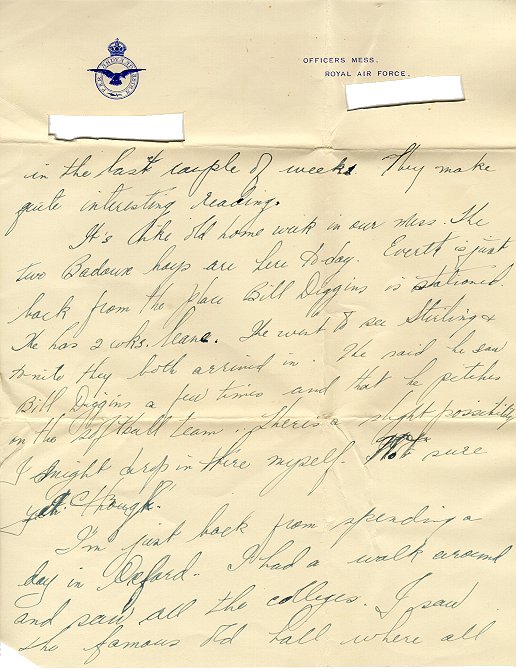 OFFICERS MESS,
ROYAL AIR FORCE.
in the last couple of weeks They make
quite interesting reading.
It's like old home week in our mess. The
two Badoux boys are here today. Everett is just
back from the place Bill Diggins is stationed.
He has 2 wks. leave. He went to see Stirling &
they both arrived in. He said he saw
Bill Diggins a few times and that he pitches
on the softball team. There's a slight possibility
I might drop in there myself. Not sure
yet though.
I'm just back from spending a
day in Oxford. I had a walk around
and saw all the colleges. I saw
the famous old hall where all